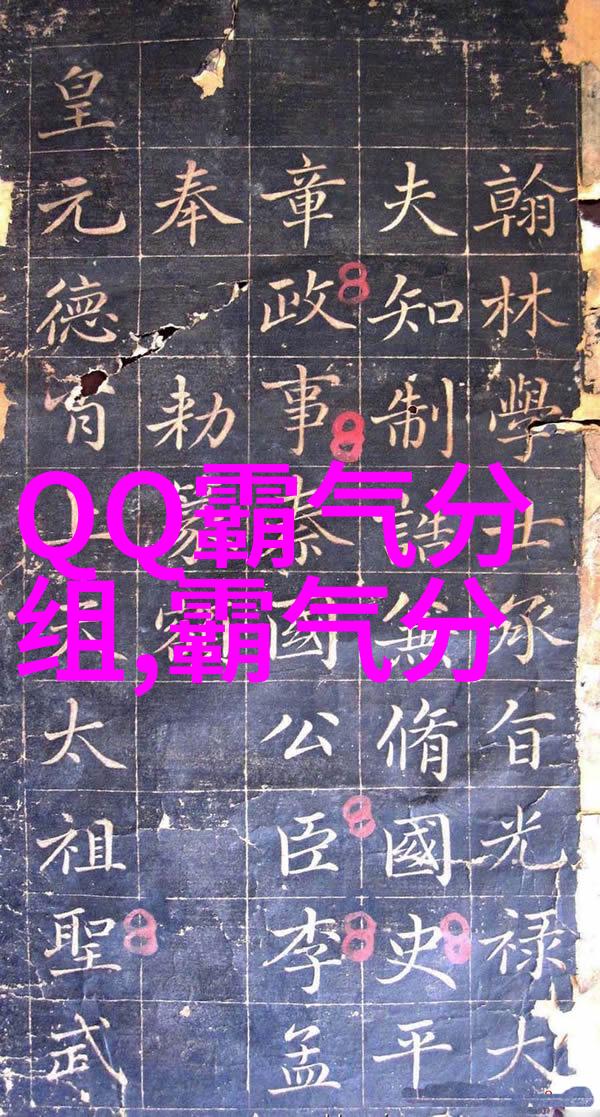 翰林學士承旨光禄大
夫知制誥兼脩國史平
章政事秦國公臣李孟
奉勅
皇元德天太祖聖武
QQ霸气分
组,霸气分